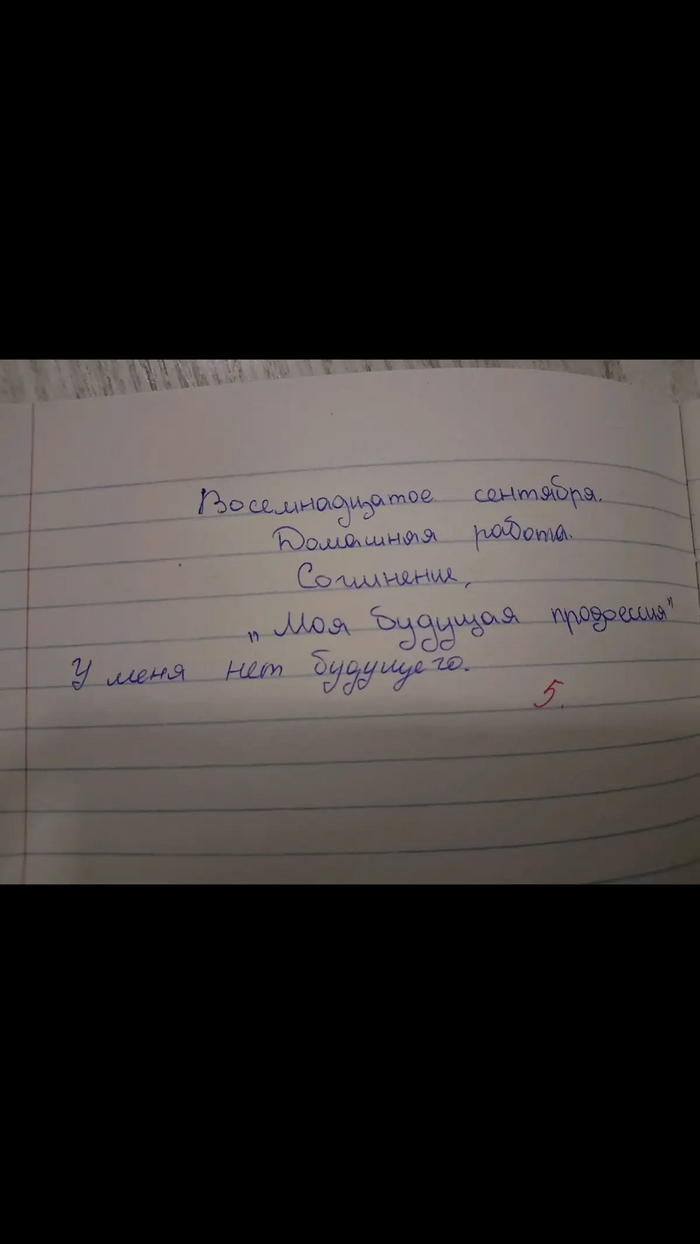 Восемнадцатое сентября.
Домашняя работа.
Сочинение,
„Моя будущая профессия"
У меня нет будущего.
5.